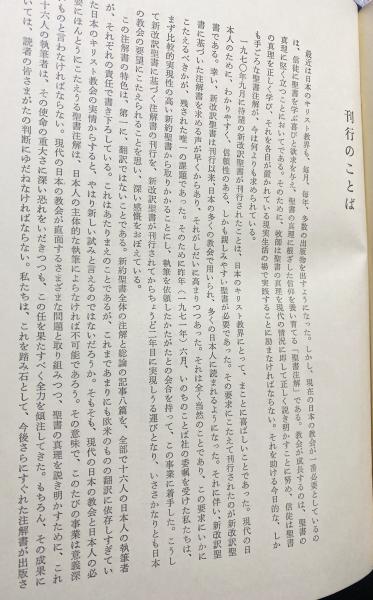 刊行のことば
最近は日本のキリスト教界も、毎月、毎年、多数の出版物を出すようになった。しかし、現在の日本の教会が一番必要としているの
は、信徒に聖書を学ぶ喜びと欲求を与え、聖書の真理に根ざした信仰を養い育てる「聖書注解」である。教会が成長するのは、聖書の
真理に堅く立つことにおいてである。そのために、牧師は聖書の真理を現代の情況に即して正しく説き明かすことに努め、信徒は聖書
の真理を正しく学び、それを各自が置かれている現実生活の場で実践することに励まなければならない。それを助ける今日的な、しか
も手ごろな聖書注解が、今は何よりも求められている。
一九七〇年九月に待望の新改訳聖書が刊行されたことは、日本のキリスト教界にとって、まことに喜ばしいことであった。現代の日
本人のために、わかりやすく、信頼性のある、しかも親しみやすい聖書が必要であった。その要求にこたえて刊行されたのが新改訳聖
書である。幸い、新改訳聖書は刊行以来、日本の多くの教会で用いられ、多くの日本人に読まれるようになった。それに伴い、新改訳聖
書に基づいた注解書を求める声が早くからあり、それがしだいに高まりつつあった。それは全く当然のことであり、この要求にいかに
こたえるべきかが、残された唯一の課題であった。そのために昨年（一九七一年）六月、いのちのことば社の委嘱を受けた私たちは、
まず比較的実現性の高い新約聖書から取りかかることにし、執筆を依頼したかたがたとの会合を持って、この事業に着手した。こうし
て新改訳聖書に基づく注解書の刊行を、新改訳聖書が刊行されてからちょうど二年目に実現しうる運びとなり、いささかなりとも日本
の教会の要望にこたえられることを思い、深い感慨をおぼえている。
この注解書の特色は、第一に、翻訳ではないことである。新約聖書全体の注解と総論の記事八篇を、全部で十六人の日本人の執筆者
が、それぞれの責任で書き下ろしている。これはあたりまえのことであるが、これまであまりにも欧米のものの翻訳に依存しすぎてい
た日本のキリスト教会の実情からすると、やはり新しい試みと言えるのではないだろうか。そもそも、現代の日本の教会と日本人の必
要にほんとうにこたえうる聖書注解は、日本人の主体的な執筆によらなければ不可能であろう。その意味で、このたびの事業は意義深
いものと言わなければならない。現代の日本の教会が直面するさまざまな問題と取り組みつつ、聖書の真理を説き明かすために、これ
十六人の執筆者は、その使命の重大さに深い恐れをいだきつつも、この任を果たすべく全力を傾注してきた。もちろん、その成果に
いては、読者の皆さまがたの判断にゆだねなければならない。私たちは、これを踏み石として、今後さらにすぐれた注解書が出版さ